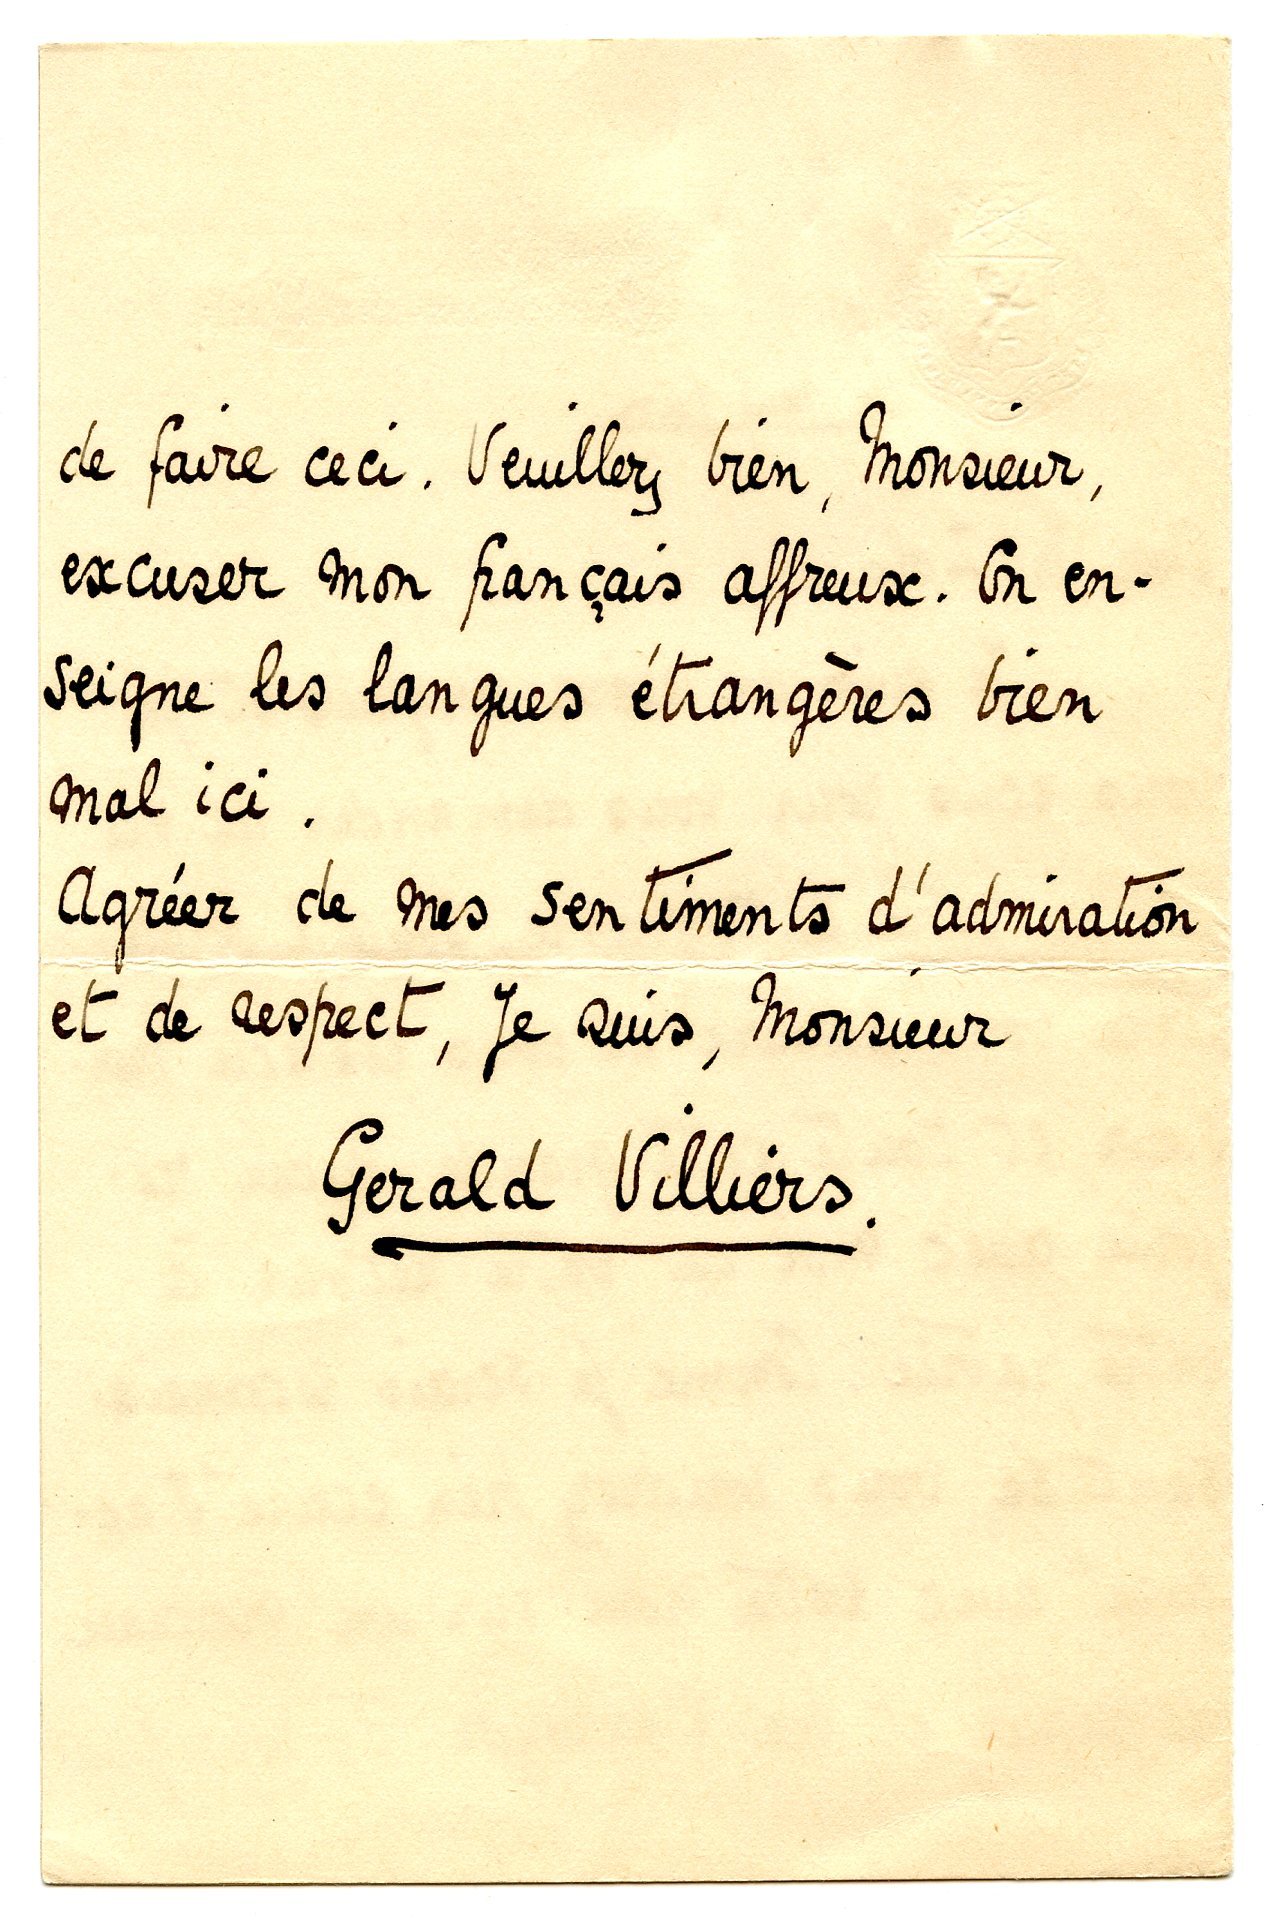 de faire ceci. Veuillez bien, Monsieur,
excuser mon français affreux. On en-
seigne les langues étrangères bien
mal ici.
Agréer de mes sentiments d'admiration
et de respect, Je suis, Monsieur
Gerald Villiers.